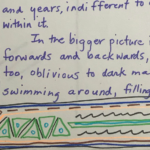 and years, indifferent to
within it.
In the bigger picture
forwards and backwards,
too, oblivious to dark ma
swimming around, filling